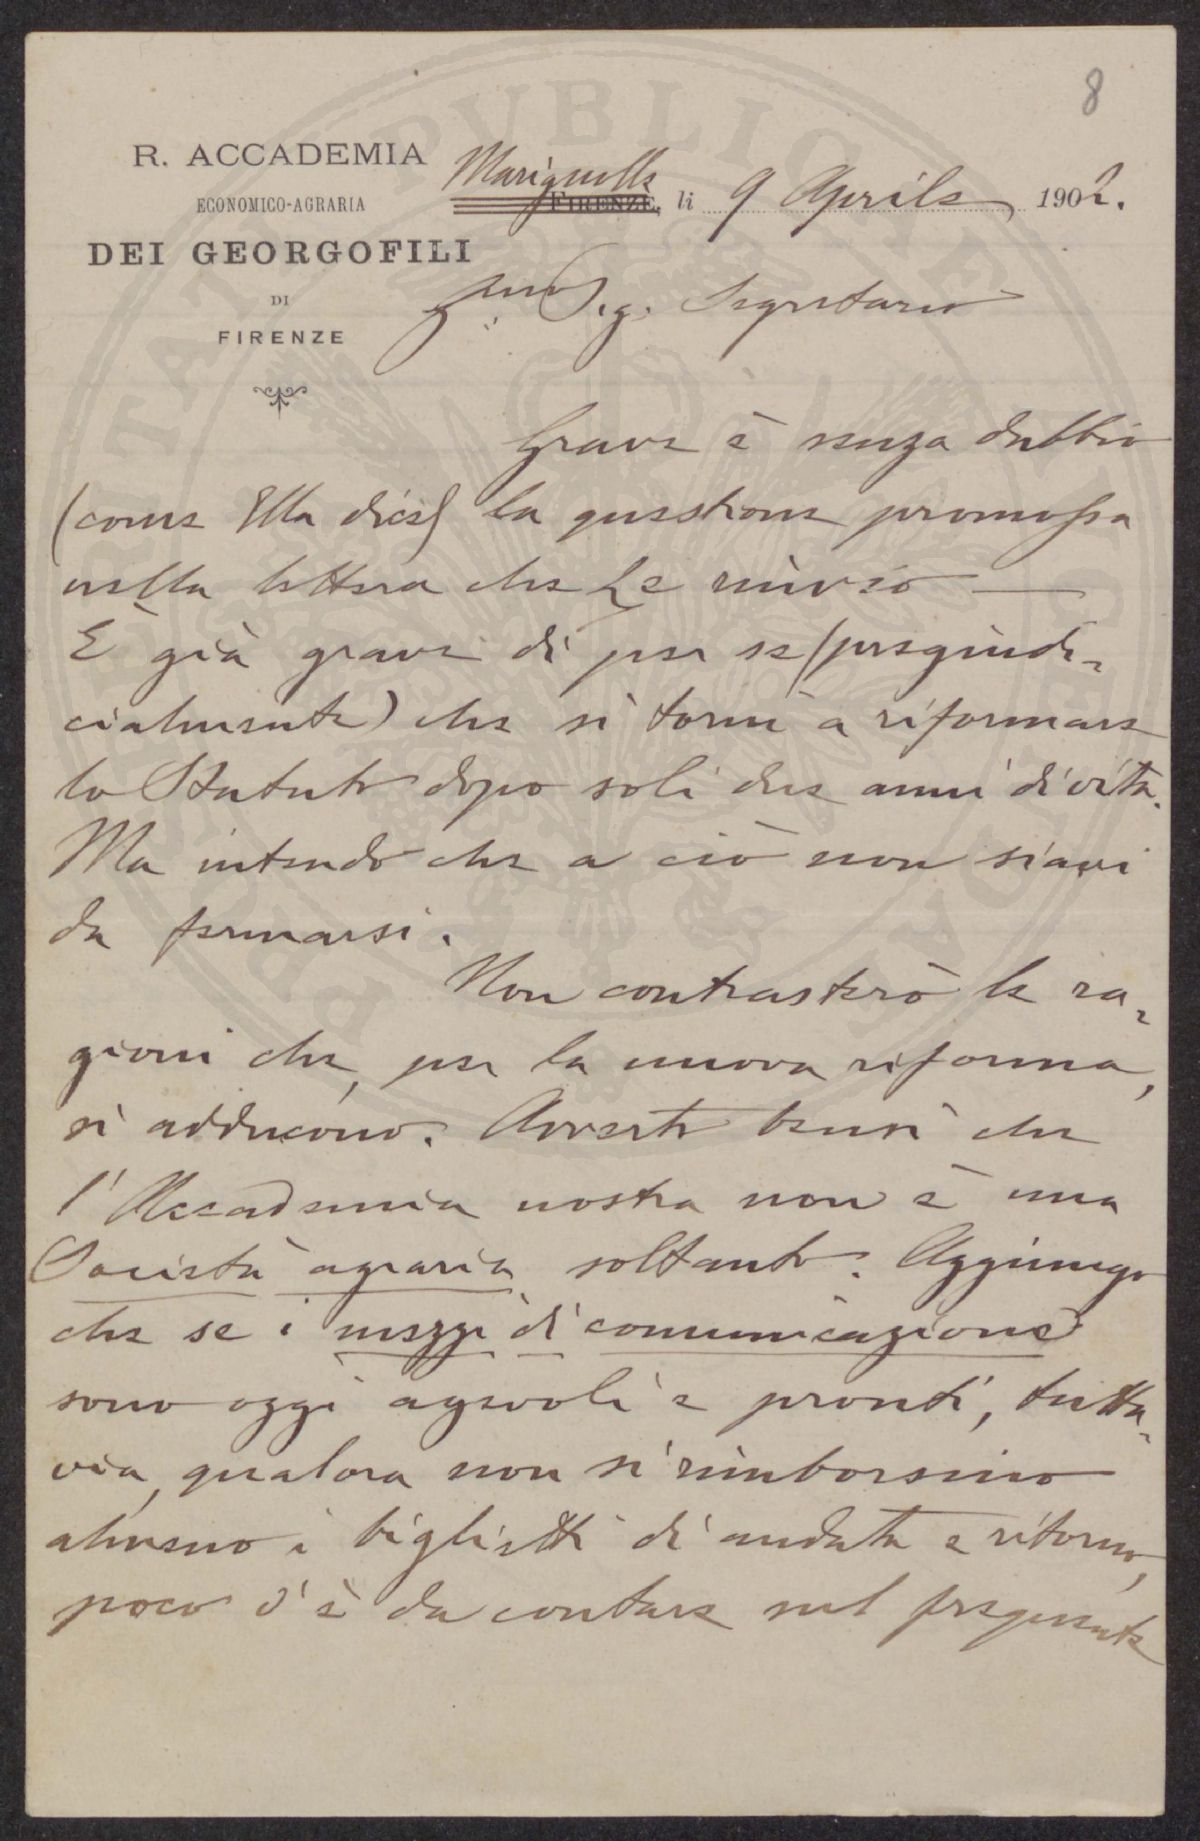 8
R. ACCADEMIA
ECONOMICO-AGRARIA
DEI GEORGOFILI
DI
FIRENZE
Marignolle
FIRENZE, li 9 Aprile 1902.
Sig. Segretario
Grave è senza dubbio
(come Ella dice) la questione promossa
nella lettera che Le rinvio —
È già grave di per se (pregiudi-
cialmente) che si torni a riformare
lo Statuto dopo soli due anni di vita.
Ma intendo che a ciò non siavi
da fermarsi.
Non contrasterò le ra-
gioni che, per la nuova riforma,
si adducono. Avverto bensì che
l'Accademia nostra non è una
Società agraria soltanto. Aggiungo
che se i mezzi di comunicazione
sono oggi agevoli e pronti, tutta-
via, qualora non si rimborsino
almeno i biglietti di andata e ritorno,
poco c'è da contare sul frequente